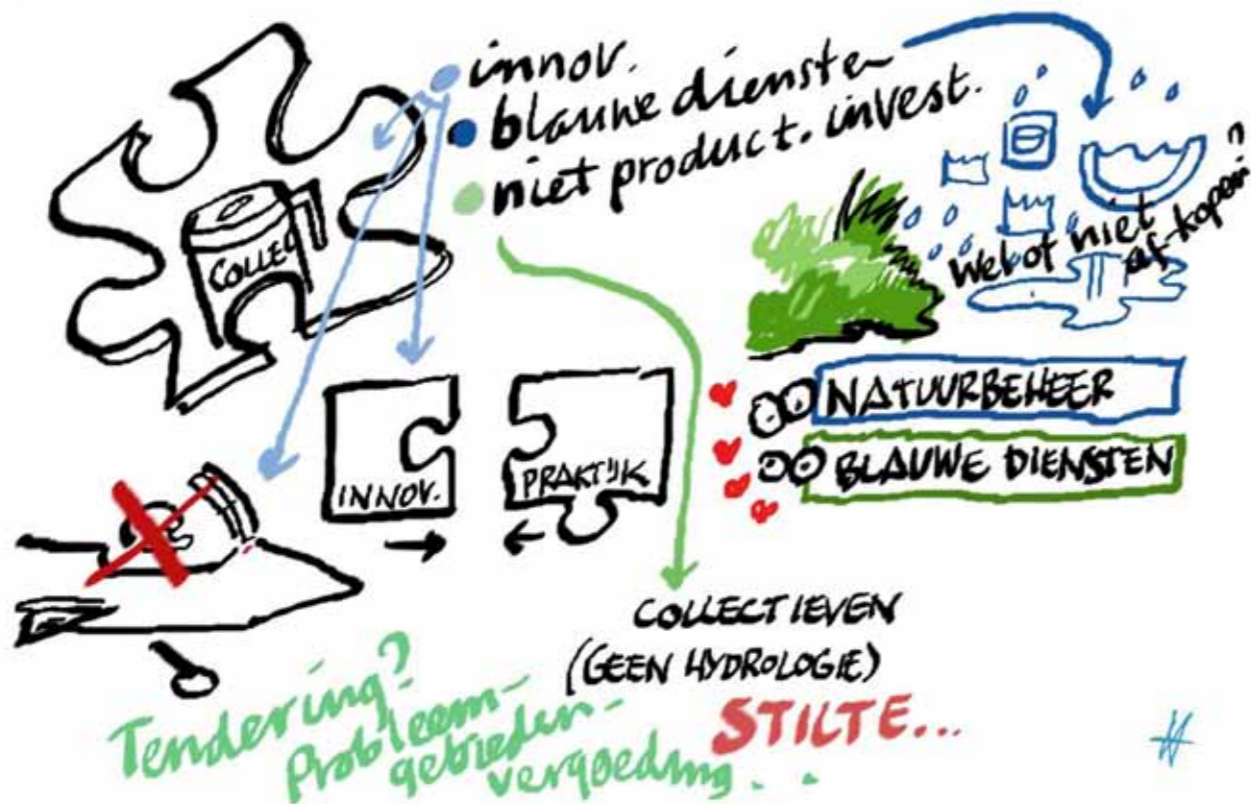 innov.
blauwe diensten
niet product. invest.
COLLEC
wel of niet
af-kopen?
NATUURBEHEER
BLAUWE DIENSTEN
INNOV.
PRAKTIJK
COLLECTIEVEN
(GEEN HYDROLOGIE)
STILTE...
Tendering?
Probleem-
gebieden-
vergoeding...